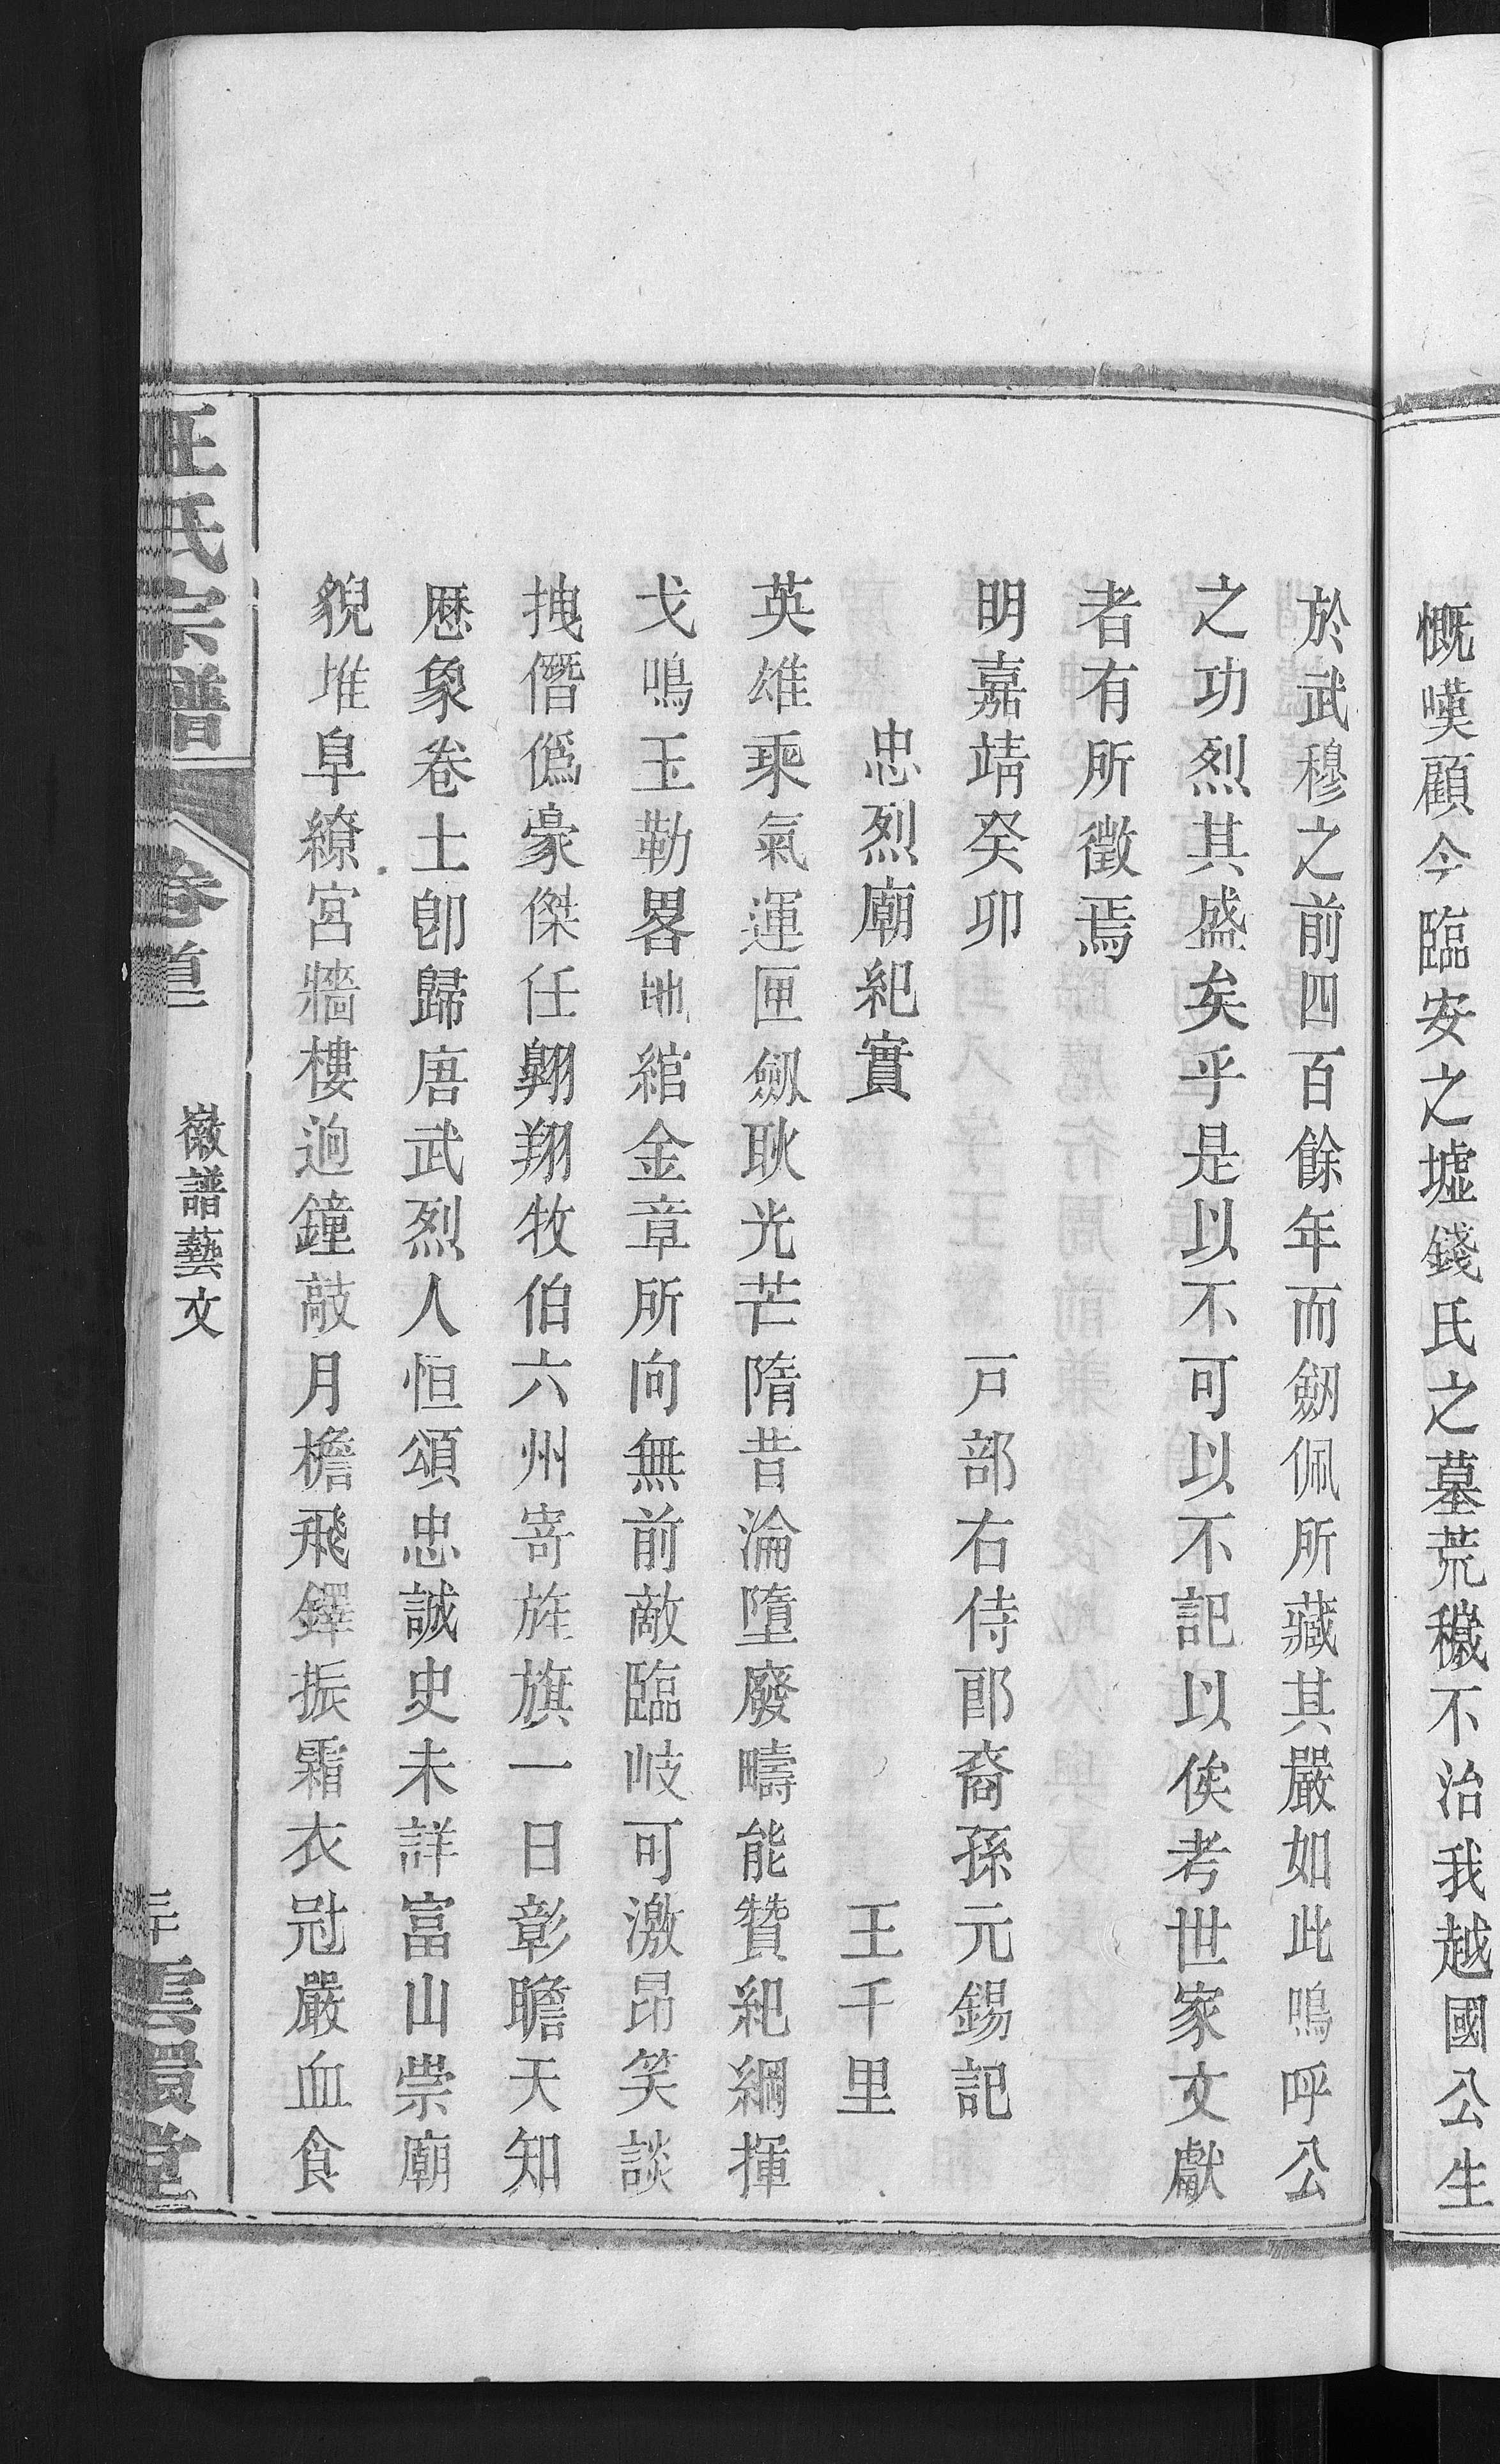 慨嘆顧今臨安之墟錢氏之墓荒穢不治我越國公生
於武穆之前四百餘年而劒佩所藏其嚴如此嗚呼公
之功烈其盛矣乎是以不可以不記以俟考世家文獻
者有所徵焉
明嘉靖癸卯 戶部右侍郎裔孫元錫記
忠烈廟紀實 王千里
英雄乘氣運匣劒耿光芒隋昔淪墮廢疇能贊紀綱揮
戈鳴玉勒畧地綰金章所向無前敵臨岐可激昂笑談
拽僭僞豪傑任翺翔牧伯六州寄旌旗一日彰瞻天知
厯象卷土卽歸唐武烈人恒頌忠誠史未詳富山崇廟
貌堆阜繚宮牆樓逈鐘敲月檐飛鐸振霜衣冠嚴血食
汪氏宗譜 卷首 徽譜藝文 三十 雲環堂